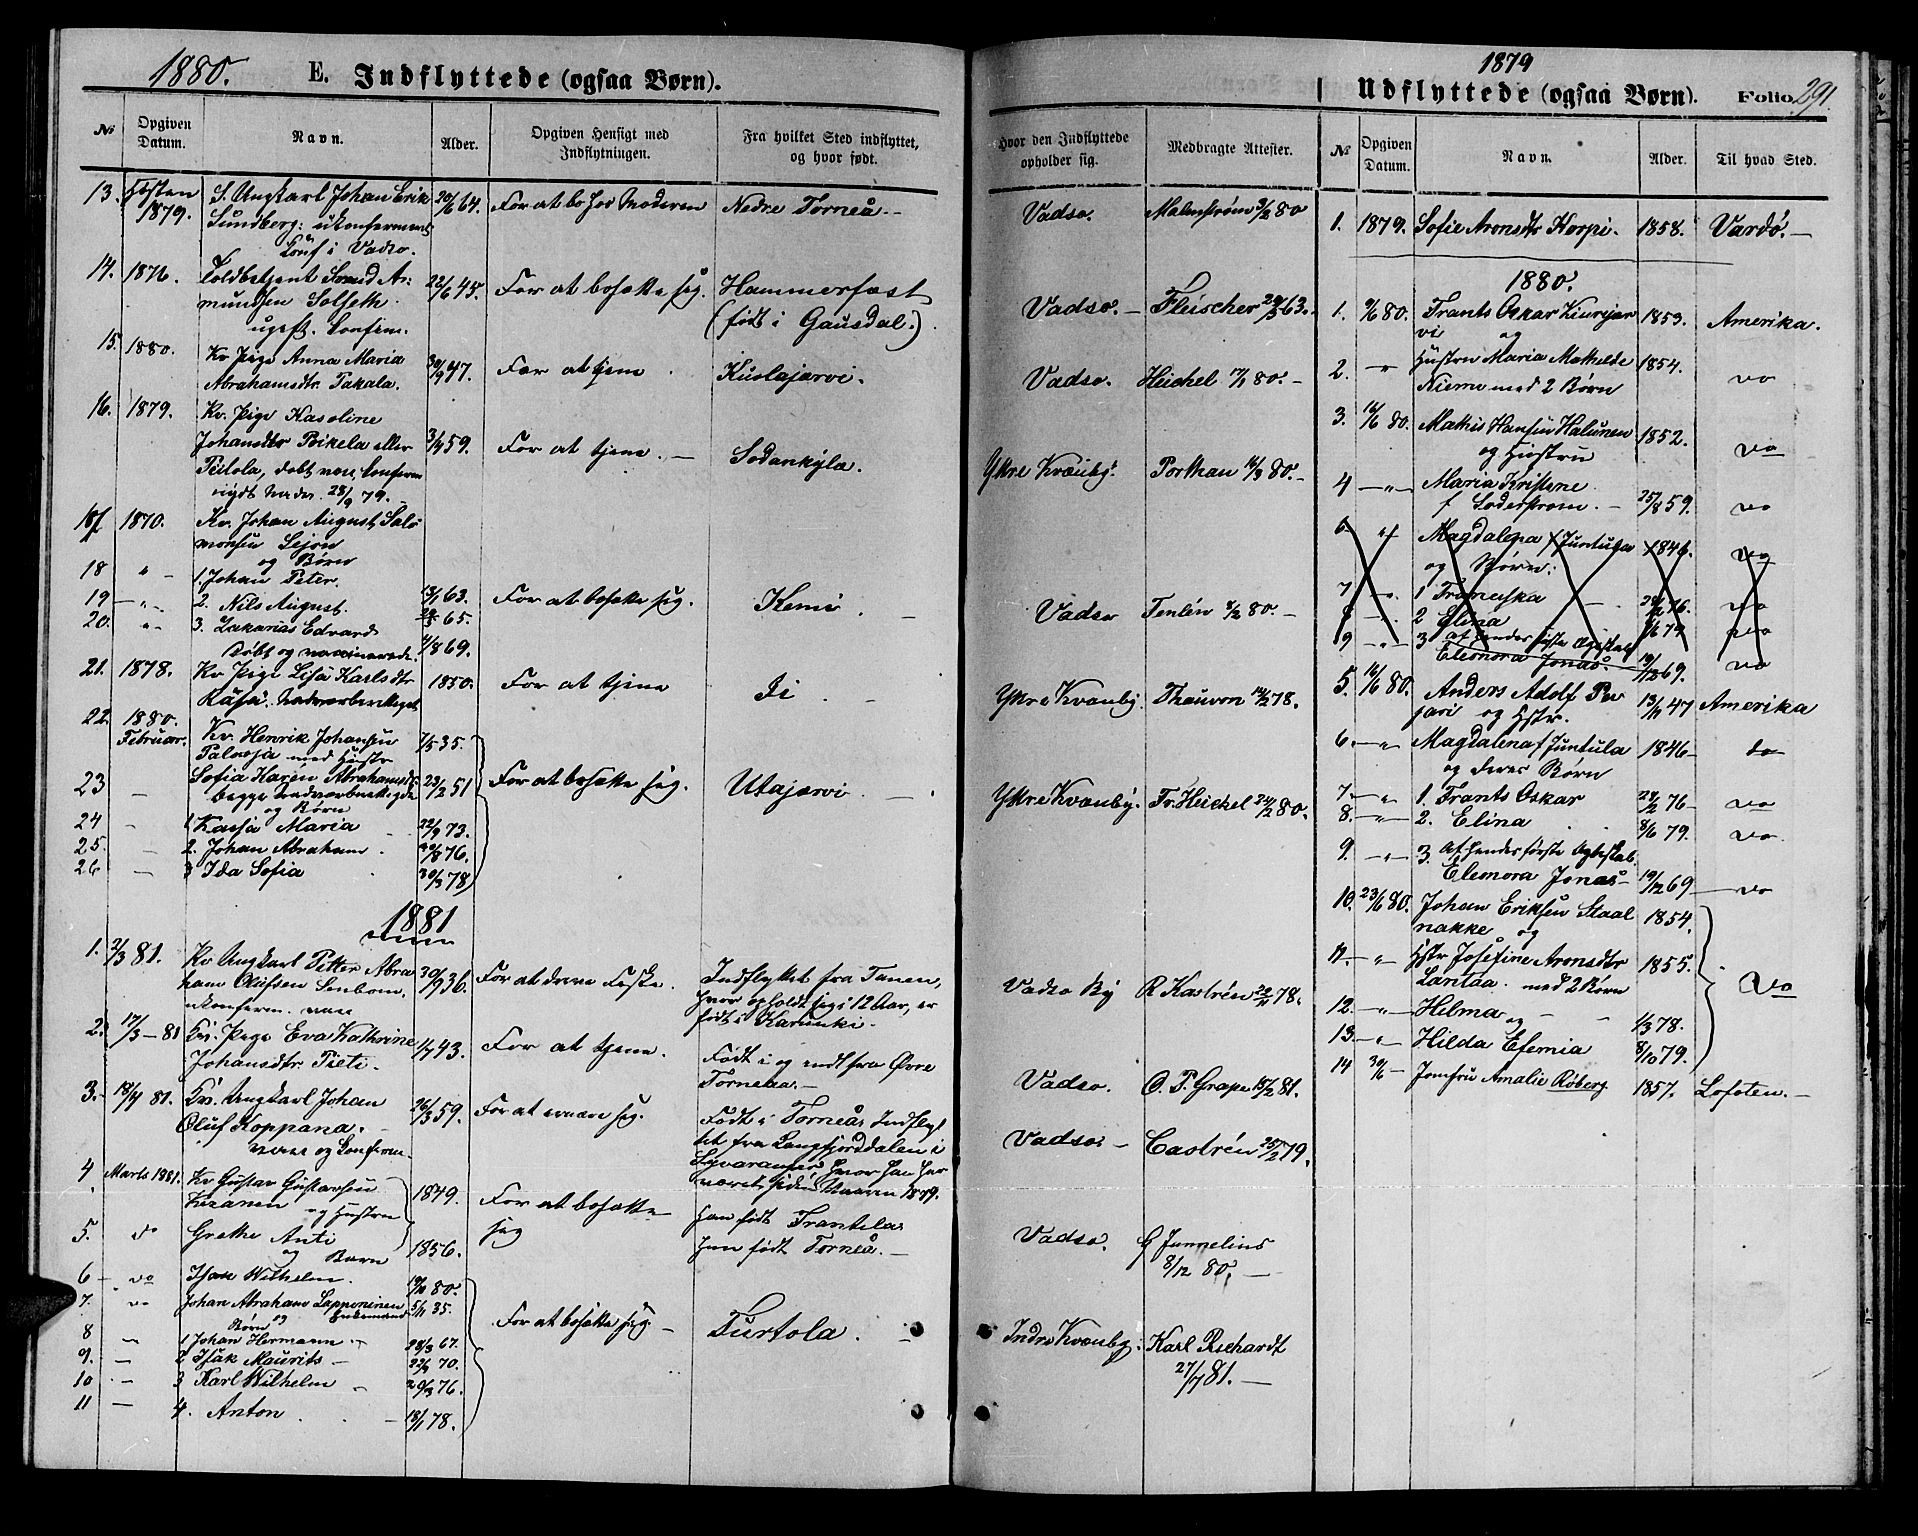 1880.
E. Indflyttede (ogsaa Børn).
№
Opgiven Datum.
Navn.
Alder.
Opgiven Hensigt med Indflytningen.
Fra hvilket Sted indflyttet, og hvor født.
13. Hösten 1879. S. Ungkarl Johan Erik 20/6 64. For at bo hos Moderen Nedre Torneå.
Sundberg: ukonfermert
i Vadsø.
14. 1876. Toldbetjent Svend Ar- 22/6 45. For at bosætte sig. Hammerfest
mundsen Solseth. (født i Gausdal.)
ugift. Confirm.
15. 1880. Kv. Pige Anna Maria 30/9 47. For at tjene Kuolajarvi.
Abrahamsdtr. Pakala.
16. 1879. Kv. Pige Karoline
Johansdtr Poikela eller 3/9 59. For at tjene. Sodankylæ.
Peitola, døbt vacc. Confirm
nydt Nadv. 28/9 79.
17 1870. Kv. Johan August Salo
monsen Lejon
og Børn
18 " 1. Johan Peter. 13/1 63. For at bosætte sig. Kemi
19 " 2. Nils August. 65.
20. " 3. Zakarias Edvard 4/8 69.
Døbt og vaccinerede.
21. 1878. Kv Pige Lisa Karlsdtr 1850. For at tjene Ii
Räsä. Nadverberettiget
22. 1880. Februar. Kv. Henrik Johansen 7/5 35.
Palooja med Hustr
23 Sofia Karen Abrahamsdtr 23/2 51 For at bosætte sig. Utajarvi.
begge nadverberettigede
og Børn
24 1 Kaisa Maria 22/9 73.
25. 2. Johan Abraham 20/8 76.
26 3 Ida Sofia 30/3 78
1881
1. 2/3 81. Kv Ungkarl Petter Abra 30/9 36. For at drive Fiske. Indflyttet fra Tanen,
ham Olufsen hvor opholdt sig i 12 Aar, er
ukonferm. vacc født i Karunki.
2. 17/3-81 Kv. Pige Eva Kathrine 1/7 43. For at tjene. Født i og indfl fra Øvre
Johansdtr Pieti. Torneaa.
3. 18/4 81. Kv. Ungkarl Johan 26/3 59. For at ernære sig. Født i Torneå. Indflyt
Oluf Koppana. tet fra Langfjorddalen i
vacc og Conferm. Sydvaranger hvor han har
været siden Vaaren 1879.
4. Marts 1881. Kv Gustav Gustavsen 1849. For at bosætte sig Han født Frantila.
og Hustru
5. do Grethe Anti 1856. Hun født Torneå.
og Barn
6 do Isak Wilhelm. 19/10 80.
7. do Johan Abraham Lapponinen 5/11 35.
og Børn Enkemand For at bosætte sig Turtola.
8 1 Johan Hermann 28/3 67.
9. 2 Isak Maurits 22/9 70.
10 3 Karl Wilhelm 29/3 76.
11 4. Anton 18/1 78.
Hvor den Indflyttede opholder sig.
Medbragte Attester.
Vadsø. Malmstrøm 3/2 80
Vadsø. Fleischer 29/5 63.
Vadsø. Heichel 7/1 80.
Ytre Kvænby. Porthan 14/3 80.
Vadsø Tenlén 9/2 80.
Ytre Kvænby. Thauvon 14/2 78.
Ytre Kvænby. Fr. Heichel 24/2 80.
Vadsø By R Kastrén 22/11 78.
Vadsø. O. P. Grape 15/2 81.
Vadsø. Castrén 25/2 79.
Vadsø. G Junnelius
8/12 80.
Indre Kvænby. Karl Richardt
27/7 81.
1879
Udflyttede (ogsaa Børn).
Folio 291
№
Opgiven Datum.
Navn.
Alder.
Til hvad Sted.
1. 1879. Sofie Aronsdtr Korpi. 1858. Vardö.
1880.
1. 9/6 80. Frants Oskar Kinnjar 1853. Amerika.
vi og
2. " Hustru Maria Mathilde 1854. do
Niemi med 2 Børn
3. 16/6 80. Mathis Hansen Halunen 1852. do
og Hustru
4 " Maria Kristene
f Soderstrøm. 25/8 59. do
6. " Magdalena f Juntula 1846. do
og Børn:
7 " 1 Franciska 28/2 76. do
8 2 Elina 8/6 79 do
9 " 3 af hendes første Ægteskab
Eleonora Jonas. 19/12 69. do
5. 16/6 80. Anders Adolf Pe 13/11 47 Amerika
jari og Hstr.
6. " Magdalena f Juntula 1846 do
og deres Børn
7. " 1. Frants Oskar 28/2 76 do
8. " 2. Elina 8/6 79. do
9. " 3. Af hendes første Ægteskab.
Eleonora Jonas 19/12 69 do
10. 23/6 80. Johan Eriksen Staal 1854.
nakke og
11. " Hstr Josefine Aronsdtr 1855.
Lantaa. med 2 Børn do
12. " Hilma og 1/3 78.
13. " Hilda Efemia 8/10 79.
14 30/6 Jomfru Amalie Röberg. 1857. Lofoten.